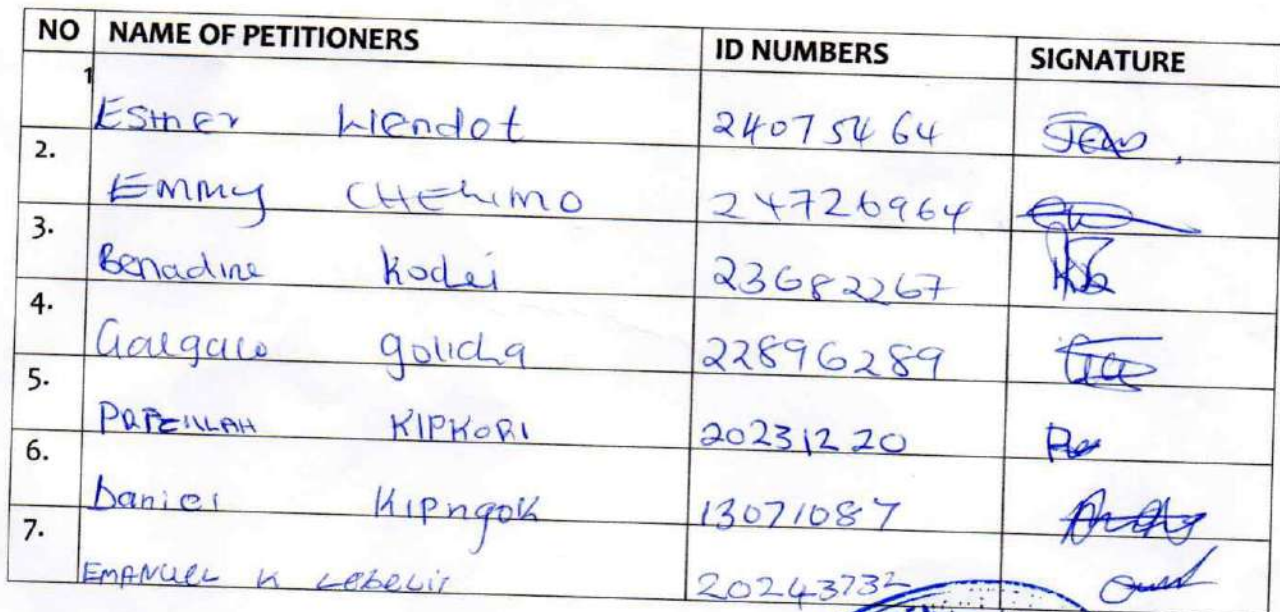 NO NAME OF PETITIONERS ID NUMBERS SIGNATURE
1 Esther Kiendot 24075464
2. Emmy CHEKIMO 24726964
3. Benadine Kodei 23682267
4. Galgalo golicha 22896289
5. KIPKORI 20231220
6. Daniel KIPngok 13071087
7. EMANUEL K Lebelir 20243732